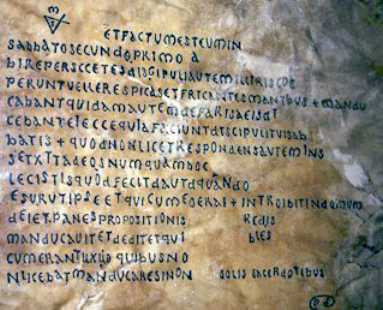 ETFACTUMESTEUMIN
SABBATOSECUNDOPRIMO A
BIREPERSCCETESDISCIPULIAUTEMILLIRISCOE
PERUNTVELLERESPICASETFRICANTESMANIBUS + MANDU
CABANTQUIDAMAUTEMDEFARISAEISDI
CEBANTEIECCEQUIAFACIUNTDISCIPULITUISAB
BATIS + QUODNONLICETRESPONDENSAUTEMINS
SETXTADEOSNUMQUAMHOC
LECISTISQUODFECITDAUTDQUANDO
ESURUTIPSEETQUICUMEOERAI + INTROIBITINDOMUM
DEIETPANESPROPOSITIONIS REDIS
MANDUCAVITETDEDITETQUI BLES
CUMERANTUXUO QUIBUSNO
NLICEBATMANDUCARESINON SOLIS SACERDOTIBUS